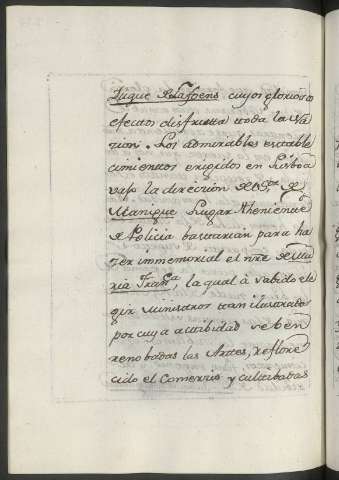 Duque de Lafoens cuyos gloriosos
efectos disfruta toda la Na
zion. Los admirables estable
cimientos erigidos en Lisboa
vajo la direccion de Dn.
Manique Lugar Theniente
de Policia bastarian para ha
zer immemorial el nre de Ma
ria Franca, la qual à sabido ele
gir Ministros tan ilustrados
por cuya actibidad se ben
renobadas las Artes, reflore
cido el Comercio y cultibadas